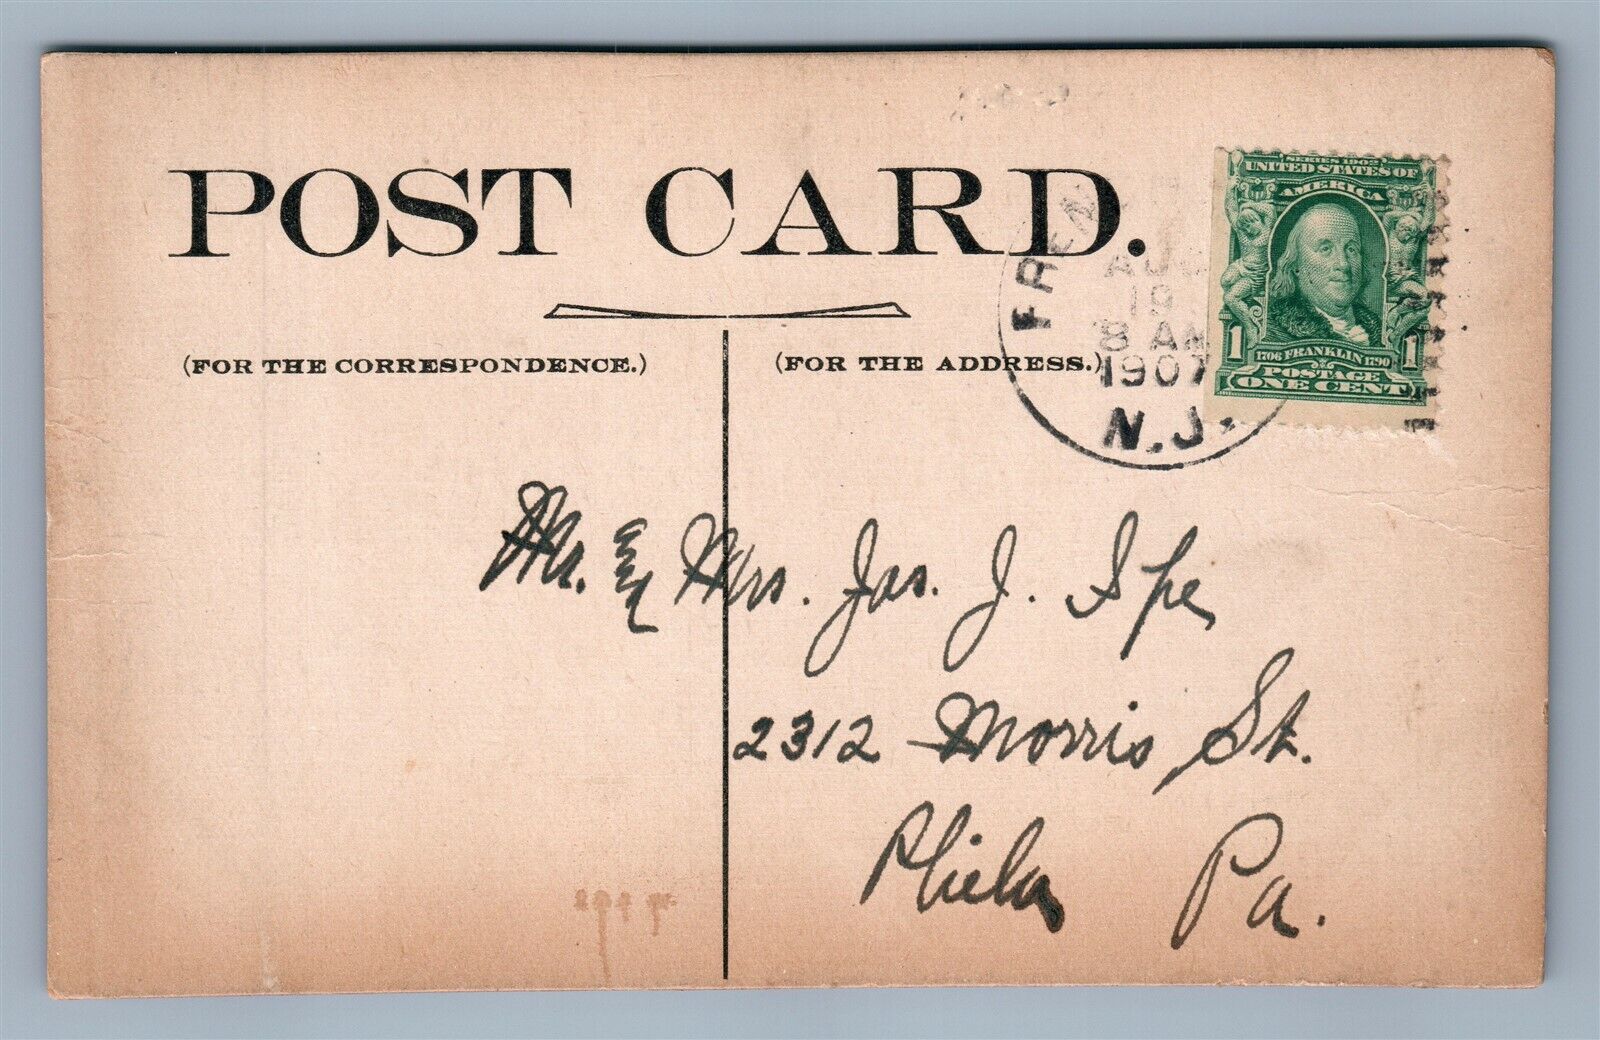 POST CARD.
(FOR THE CORRESPONDENCE.)
(FOR THE ADDRESS.)
FREN
AUG
19
8 AM
1907
N.J.
SERIES 1902
UNITED STATES OF
AMERICA
1 1706 FRANKLIN 1790 1
POSTAGE
ONE CENT
Mr. & Mrs. Jas. J. Spe
2312 Morris St.
Phila Pa.